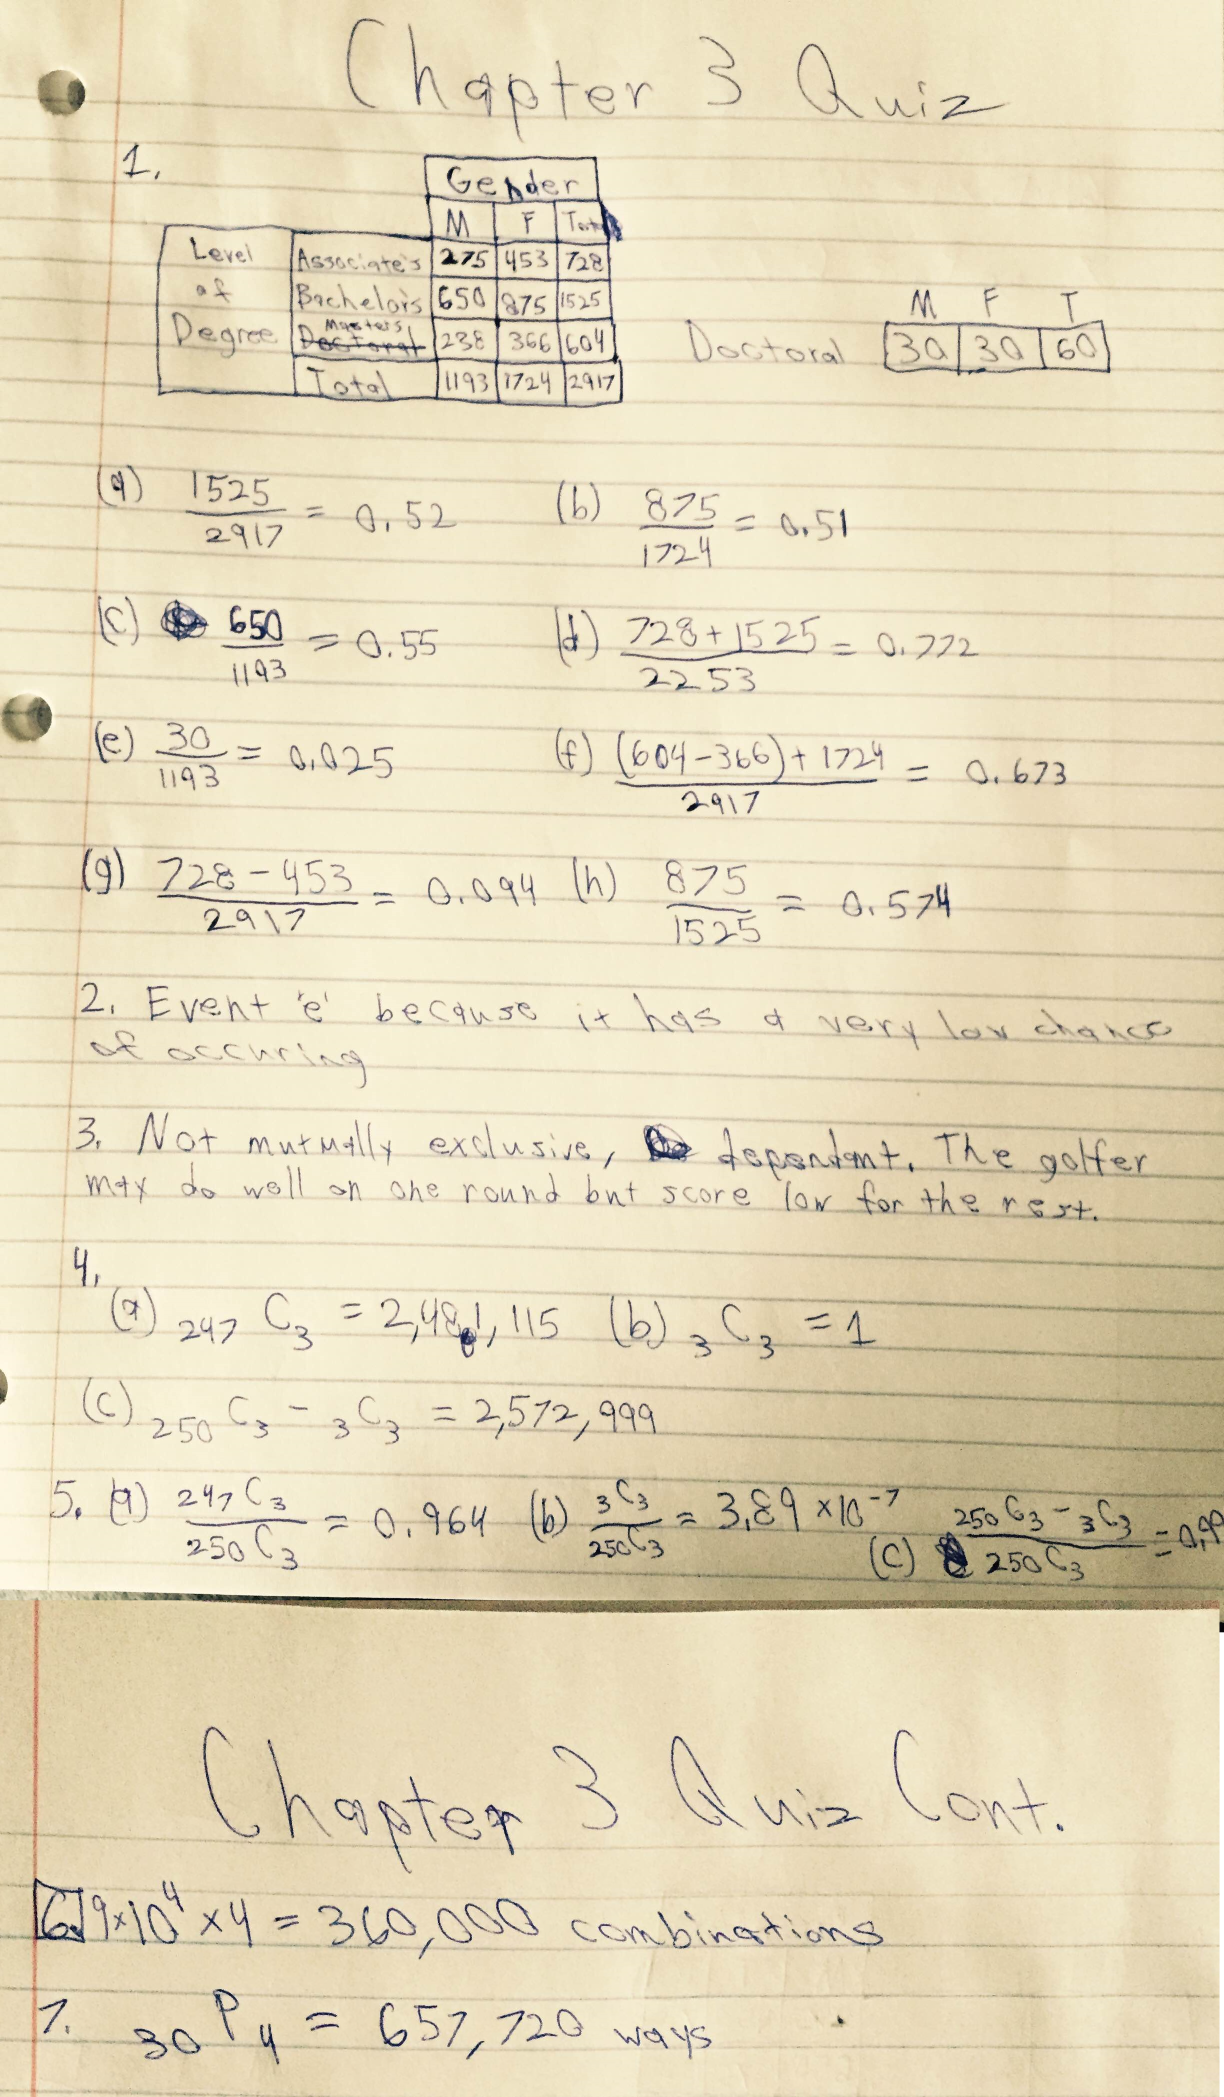 Chapter 3 Quiz
1.
Gender
M F Total
Level of Degree
Associate's 275 453 728
Bachelor's 650 875 1525
Masters 238 366 604
Total 1193 1724 2917
M F T
Doctoral 30 30 60
(a) 1525/2917 = 0.52 (b) 875/1724 = 0.51
(c) 650/1193 = 0.55 (d) 728+1525/2253 = 0.772
(e) 30/1193 = 0.025 (f) (604-366)+1724/2917 = 0.673
(g) 728-453/2917 = 0.094 (h) 875/1525 = 0.574
2. Event 'e' because it has a very low chance
of occuring
3. Not mutually exclusive, dependant. The golfer
may do well on one round but score low for the rest.
4.
(a) 247 C 3 = 2,481,115 (b) 3 C 3 = 1
(c) 250 C 3 - 3 C 3 = 2,572,999
5. (a) 247 C 3/250 C 3 = 0.964 (b) 3 C 3/250 C 3 = 3.89 ×10^-7
(c) 250 C 3 - 3 C 3/250 C 3 = 0.99
Chapter 3 Quiz Cont.
6. 9×10^4 ×4 = 360,000 combinations
7. 30 P 4 = 657,720 ways